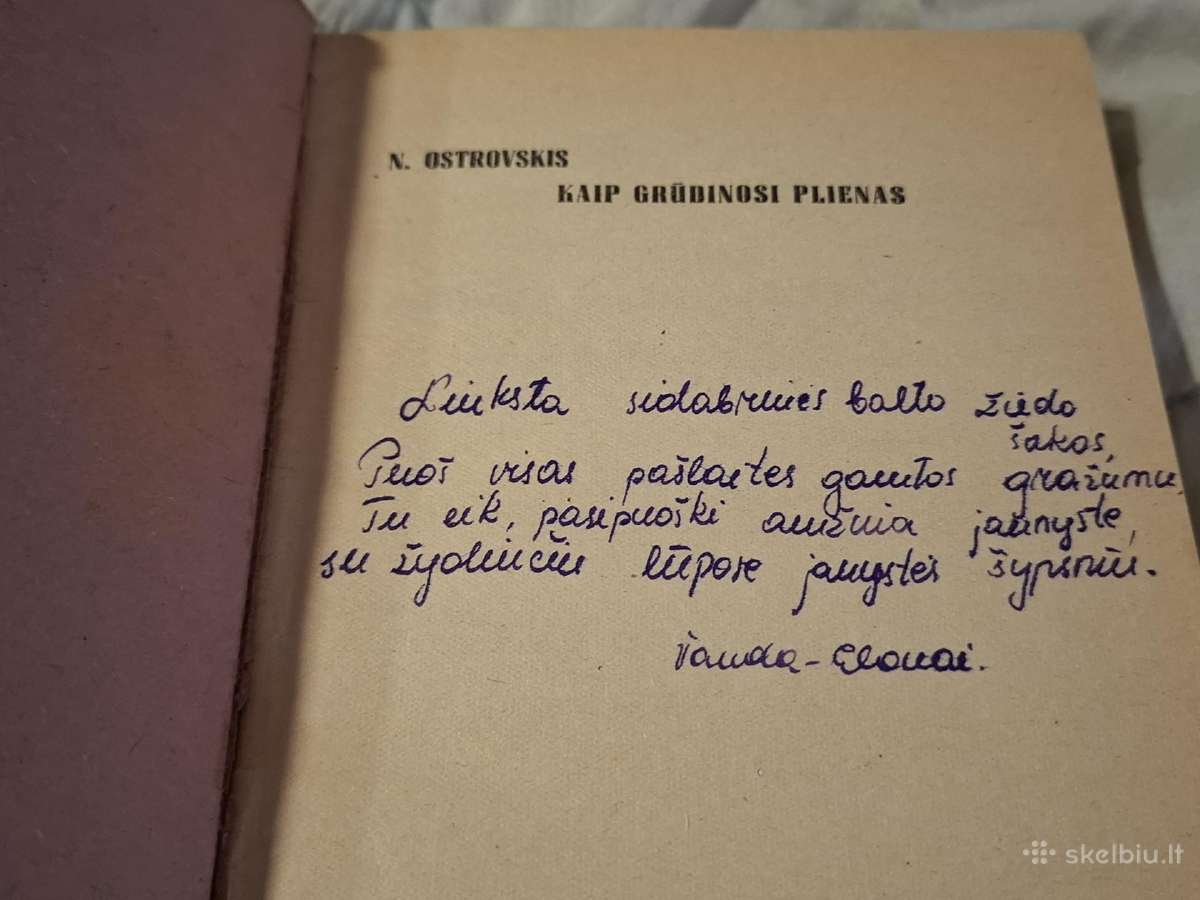 N. OSTROVSKIS
KAIP GRŪDINOSI PLIENAS
Linksta sidabrinės balto žiedo
šakos,
Puoš visas pašlaites gamtos gražumu,
Tu eik, pasipuoški amžina jaunyste,
su žydinčiu lūpose jaunystės šypsniu.
Vanda - Elonai.
skelbiu.lt